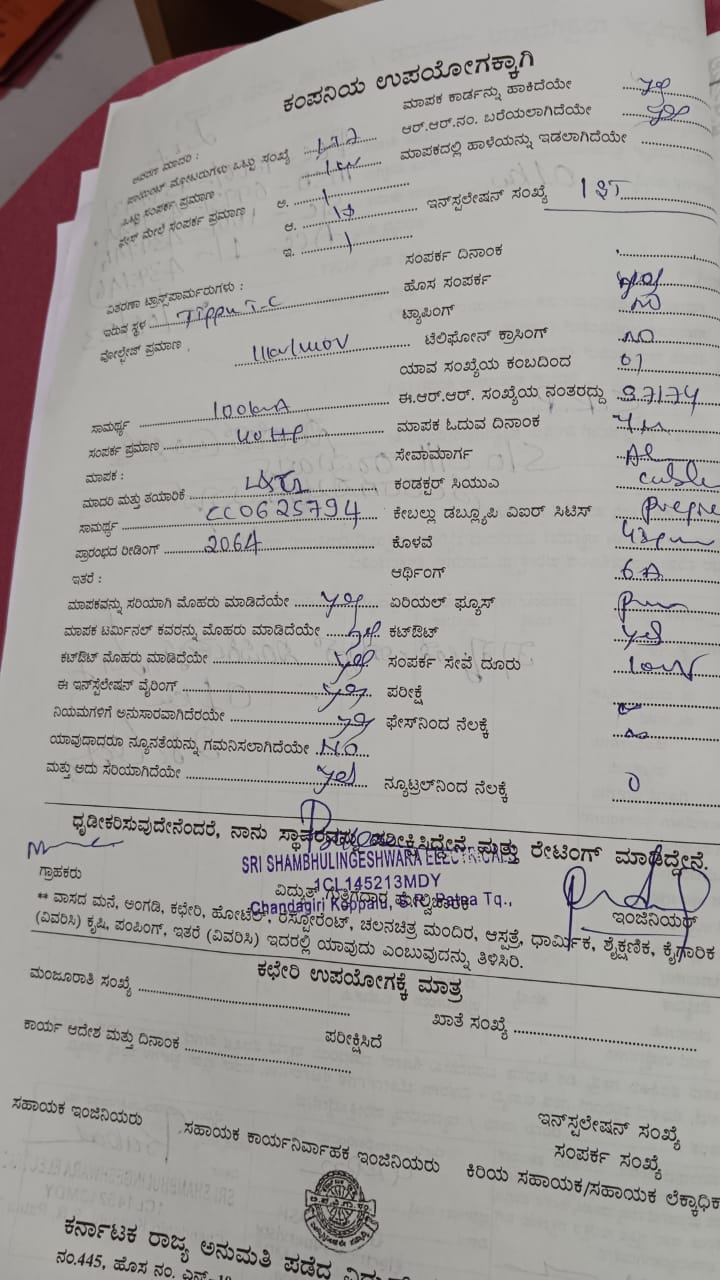 ಕಂಪನಿಯ ಉಪಯೋಗಕ್ಕಾಗಿ
ಮಾಪಕ ಕಾರ್ಡನ್ನು ಹಾಕಿದೆಯೇ
ಆವರಣ ಮಾದರಿ :
ಆರ್.ಆರ್.ನಂ. ಬರೆಯಲಾಗಿದೆಯೇ
ಪಾಯಿಂಟ್ ಮೋಟರುಗಳು ಒಟ್ಟು ಸಂಖ್ಯೆ
ಮಾಪಕದಲ್ಲಿ ಹಾಳೆಯನ್ನು ಇಡಲಾಗಿದೆಯೇ
ಒಟ್ಟು ಸಂಪರ್ಕ ಪ್ರಮಾಣ
ಫೇಸ್ ಮೇಲೆ ಸಂಪರ್ಕ ಪ್ರಮಾಣ ಅ. 1
ಆ. ಇನ್‌ಸ್ಟಲೇಷನ್ ಸಂಖ್ಯೆ 1 ST
ಇ. 1
ಸಂಪರ್ಕ ದಿನಾಂಕ
ವಿತರಣಾ ಟ್ರಾನ್ಸ್‌ಪಾರ್ಮರುಗಳು : ಹೊಸ ಸಂಪರ್ಕ yes
ಇರುವ ಸ್ಥಳ Tippu T-C ಟ್ಯಾಪಿಂಗ್ no
ವೋಲ್ಟೇಜ್ ಪ್ರಮಾಣ ಟೆಲಿಫೋನ್ ಕ್ರಾಸಿಂಗ್ no
ಯಾವ ಸಂಖ್ಯೆಯ ಕಂಬದಿಂದ 01
ಸಾಮರ್ಥ್ಯ 100kvA ಈ.ಆರ್.ಆರ್. ಸಂಖ್ಯೆಯ ನಂತರದ್ದು 97174
ಸಂಪರ್ಕ ಪ್ರಮಾಣ 40 HP ಮಾಪಕ ಓದುವ ದಿನಾಂಕ
ಮಾಪಕ : ಸೇವಾಮಾರ್ಗ AL
ಮಾದರಿ ಮತ್ತು ತಯಾರಿಕೆ L&T ಕಂಡಕ್ಟರ್ ಸಿಯುವಿ cable
ಸಾಮರ್ಥ್ಯ CC0625794 ಕೇಬಲ್ಲು ಡಬ್ಲ್ಯೂಪಿ ವಿಐರ್ ಸಿಟಿಸ್
ಪ್ರಾರಂಭದ ರೀಡಿಂಗ್ 2064 ಕೊಳವೆ
ಇತರೆ : ಆರ್ಥಿಂಗ್ 6A
ಮಾಪಕವನ್ನು ಸರಿಯಾಗಿ ಮೊಹರು ಮಾಡಿದೆಯೇ yes ಏರಿಯಲ್ ಫ್ಯೂಸ್
ಮಾಪಕ ಟರ್ಮಿನಲ್ ಕವರನ್ನು ಮೊಹರು ಮಾಡಿದೆಯೇ yes ಕಟ್‌ಔಟ್ yes
ಕಟ್‌ಔಟ್ ಮೊಹರು ಮಾಡಿದೆಯೇ yes ಸಂಪರ್ಕ ಸೇವೆ ದೂರು
ಈ ಇನ್‌ಸ್ಟೆಲೇಷನ್ ವೈರಿಂಗ್ yes ಪರೀಕ್ಷೆ
ನಿಯಮಗಳಿಗೆ ಅನುಸಾರವಾಗಿದೆರಯೇ yes ಫೇಸ್‌ನಿಂದ ನೆಲಕ್ಕೆ
ಯಾವುದಾದರೂ ನ್ಯೂನತೆಯನ್ನು ಗಮನಿಸಲಾಗಿದೆಯೇ No
ಮತ್ತು ಅದು ಸರಿಯಾಗಿದೆಯೇ yes ನ್ಯೂಟ್ರಲ್‌ನಿಂದ ನೆಲಕ್ಕೆ 0
ಧೃಡೀಕರಿಸುವುದೇನೆಂದರೆ, ನಾನು ಸ್ಥಾವರವನ್ನು ಪರೀಕ್ಷಿಸಿದ್ದೇನೆ ಮತ್ತು ರೇಟಿಂಗ್ ಮಾಡಿದ್ದೇನೆ.
SRI SHAMBHULINGESHWARA ELECTRICALS
ಗ್ರಾಹಕರು ವಿದ್ಯುತ್ ಗುತ್ತಿಗೆದಾರ ಇಂಜಿನಿಯರ್
1CL145213MDY
Chandagiri Koppalu, S.R. Patna Tq.,
** ವಾಸದ ಮನೆ, ಅಂಗಡಿ, ಕಛೇರಿ, ಹೋಟೆಲ್, ರೆಸ್ಟೋರೆಂಟ್, ಚಲನಚಿತ್ರ ಮಂದಿರ, ಆಸ್ಪತ್ರೆ, ಧಾರ್ಮಿಕ, ಶೈಕ್ಷಣಿಕ, ಕೈಗಾರಿಕ
(ವಿವರಿಸಿ) ಕೃಷಿ, ಪಂಪಿಂಗ್, ಇತರೆ (ವಿವರಿಸಿ) ಇದರಲ್ಲಿ ಯಾವುದು ಎಂಬುವುದನ್ನು ತಿಳಿಸಿರಿ.
ಕಛೇರಿ ಉಪಯೋಗಕ್ಕೆ ಮಾತ್ರ
ಮಂಜೂರಾತಿ ಸಂಖ್ಯೆ ಖಾತೆ ಸಂಖ್ಯೆ
ಕಾರ್ಯ ಆದೇಶ ಮತ್ತು ದಿನಾಂಕ ಪರೀಕ್ಷಿಸಿದೆ
ಇನ್‌ಸ್ಟಲೇಷನ್ ಸಂಖ್ಯೆ
ಸಂಪರ್ಕ ಸಂಖ್ಯೆ
ಸಹಾಯಕ ಇಂಜಿನಿಯರು ಸಹಾಯಕ ಕಾರ್ಯನಿರ್ವಾಹಕ ಇಂಜಿನಿಯರು ಕಿರಿಯ ಸಹಾಯಕ/ಸಹಾಯಕ ಲೆಕ್ಕಾಧಿಕ
ಕರ್ನಾಟಕ ರಾಜ್ಯ ಅನುಮತಿ ಪಡೆದ
ನಂ.445, ಹೊಸ ನಂ.